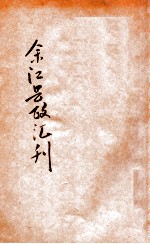 余江县政汇刊